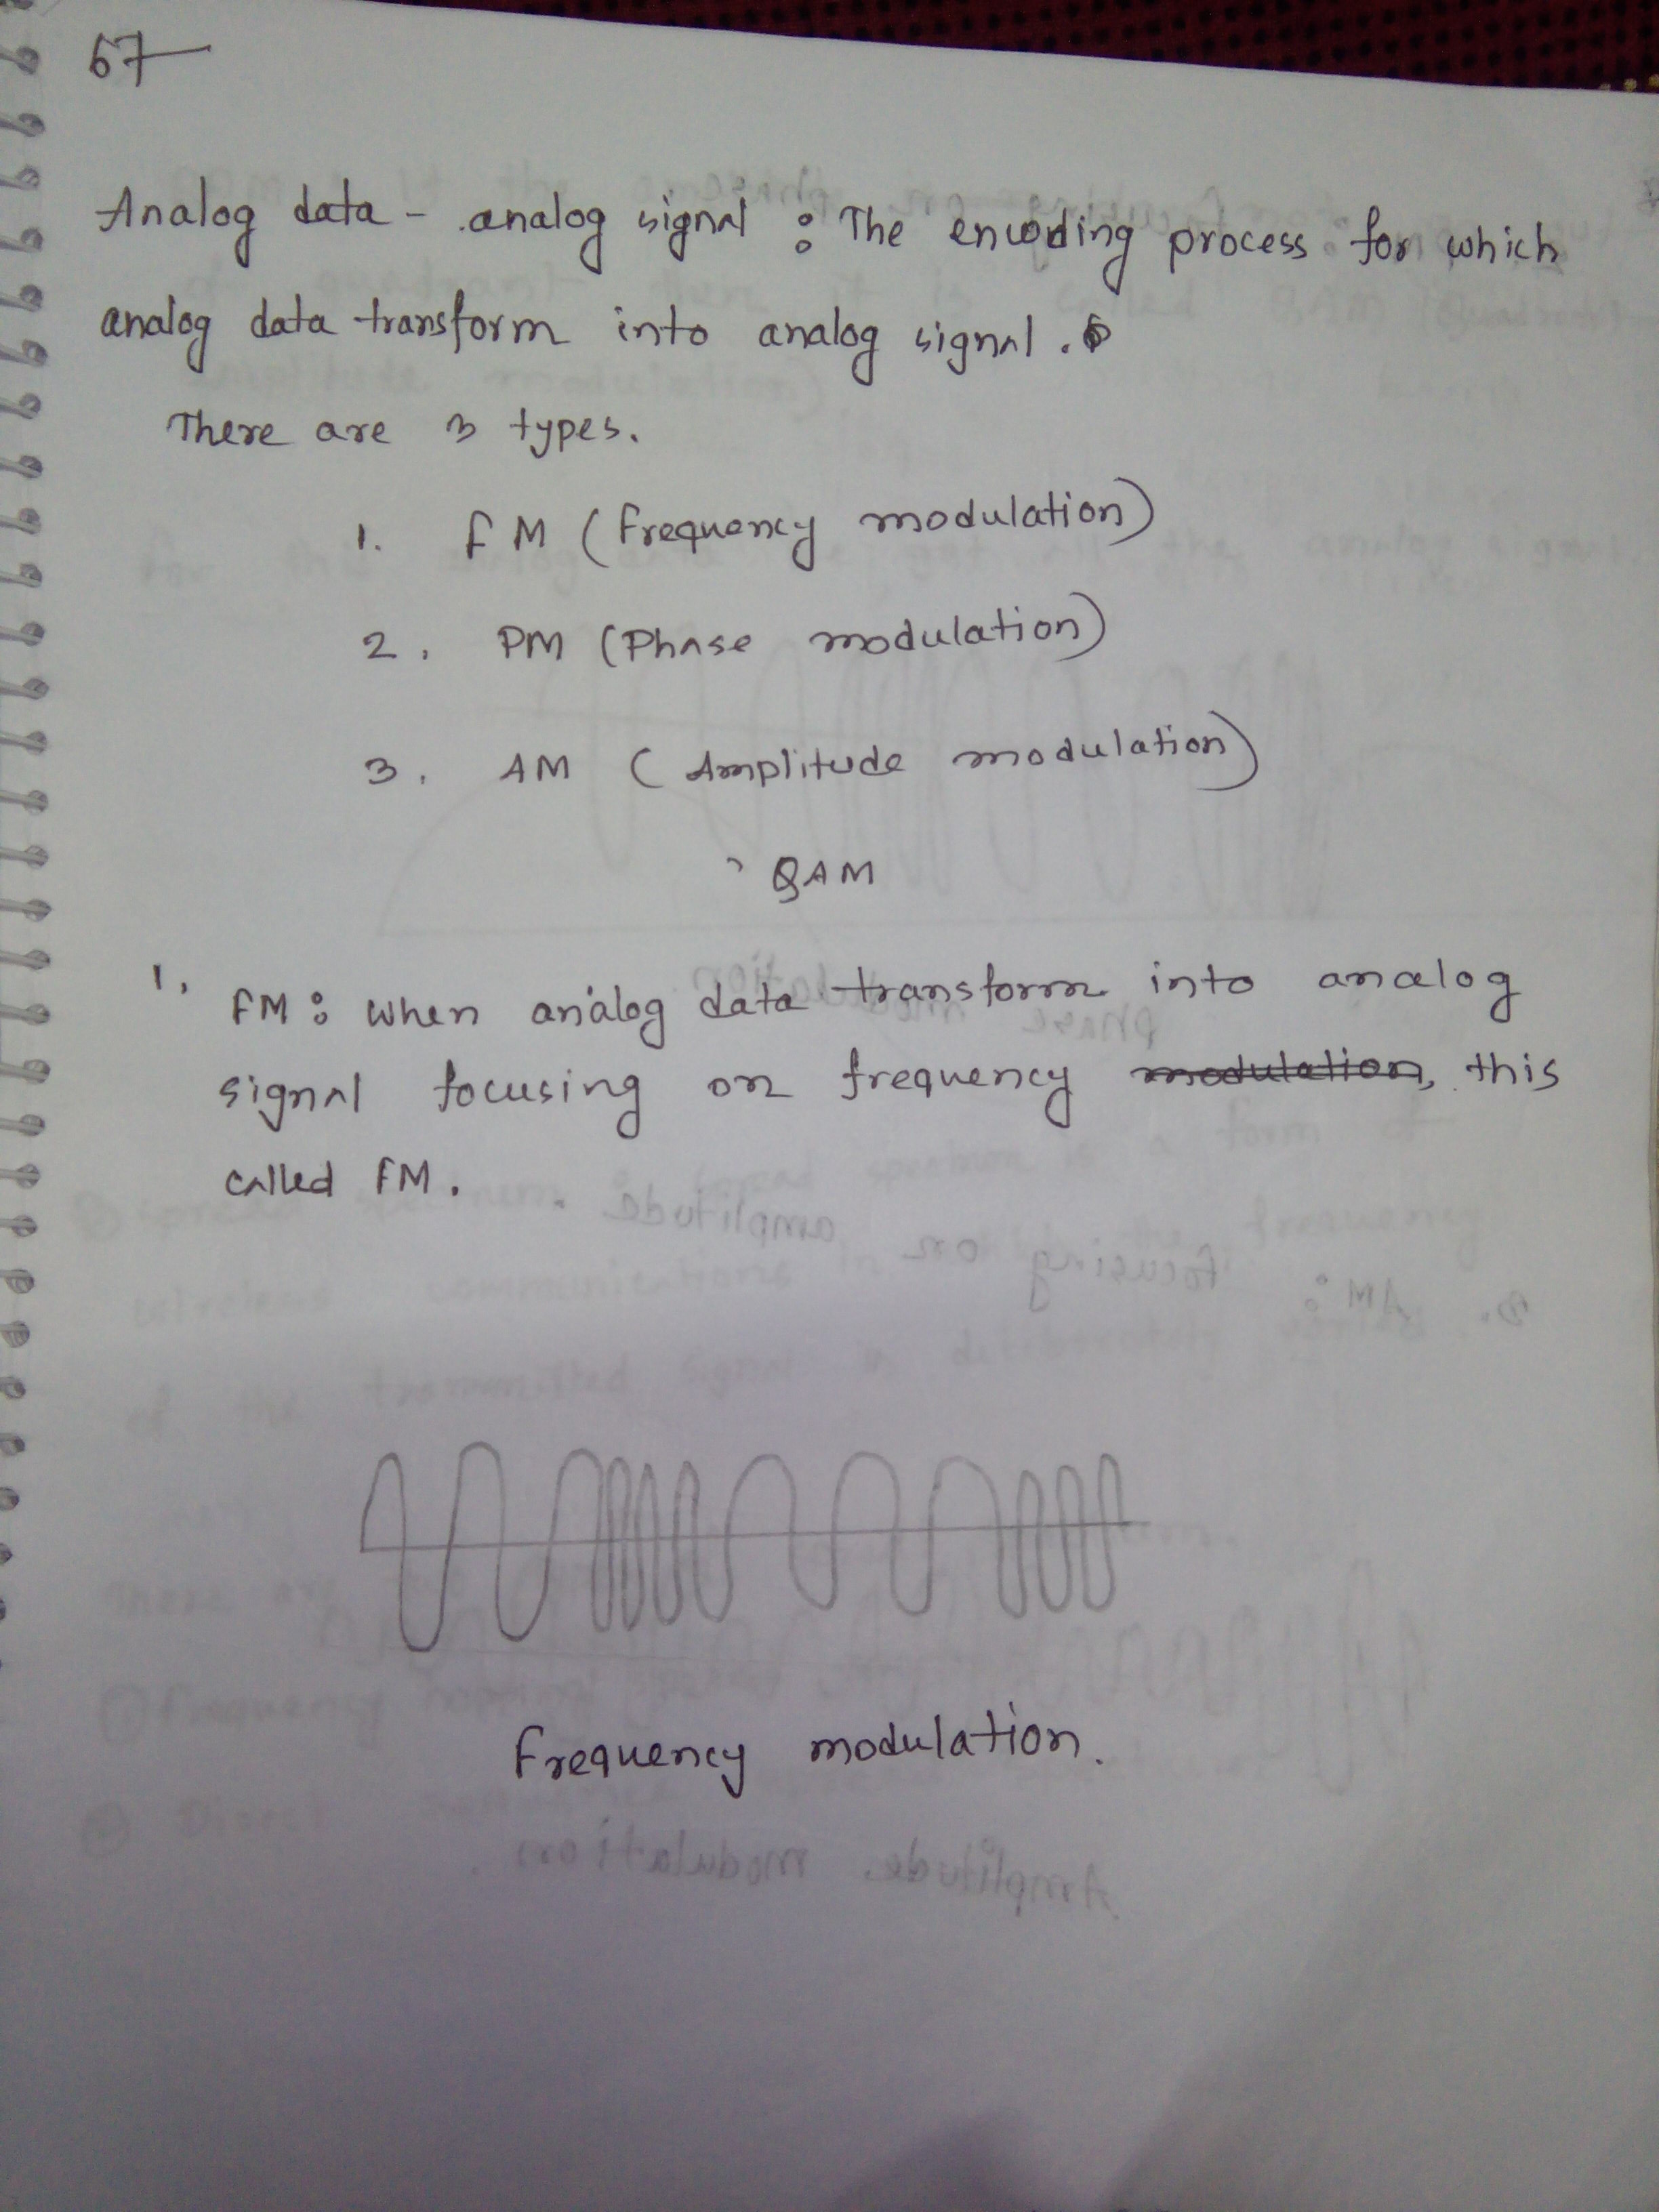 67
Analog data - analog signal : The encoding process for which
analog data transform into analog signal.
There are 3 types.
1. FM (Frequency modulation)
2. PM (Phase modulation)
3. AM (Amplitude modulation)
QAM
1. FM : When analog data transform into analog
signal focusing on frequency modulation, this
called FM.
Frequency modulation.